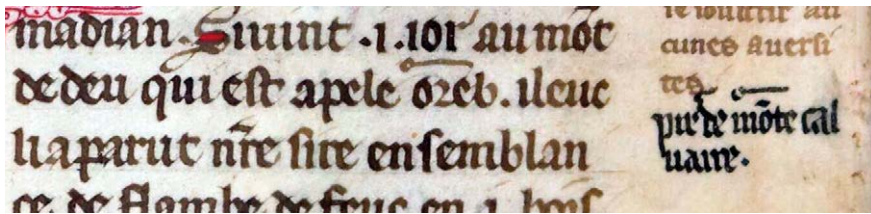 madian. Si uint .i. ior au mōt
de deu qui est apele oreb. ileuc
li aparut nr̄e sire en semblan
ce de flambe de feuc en .i. bois
cunes auersi
tes
pie de mōte cal
uaire.